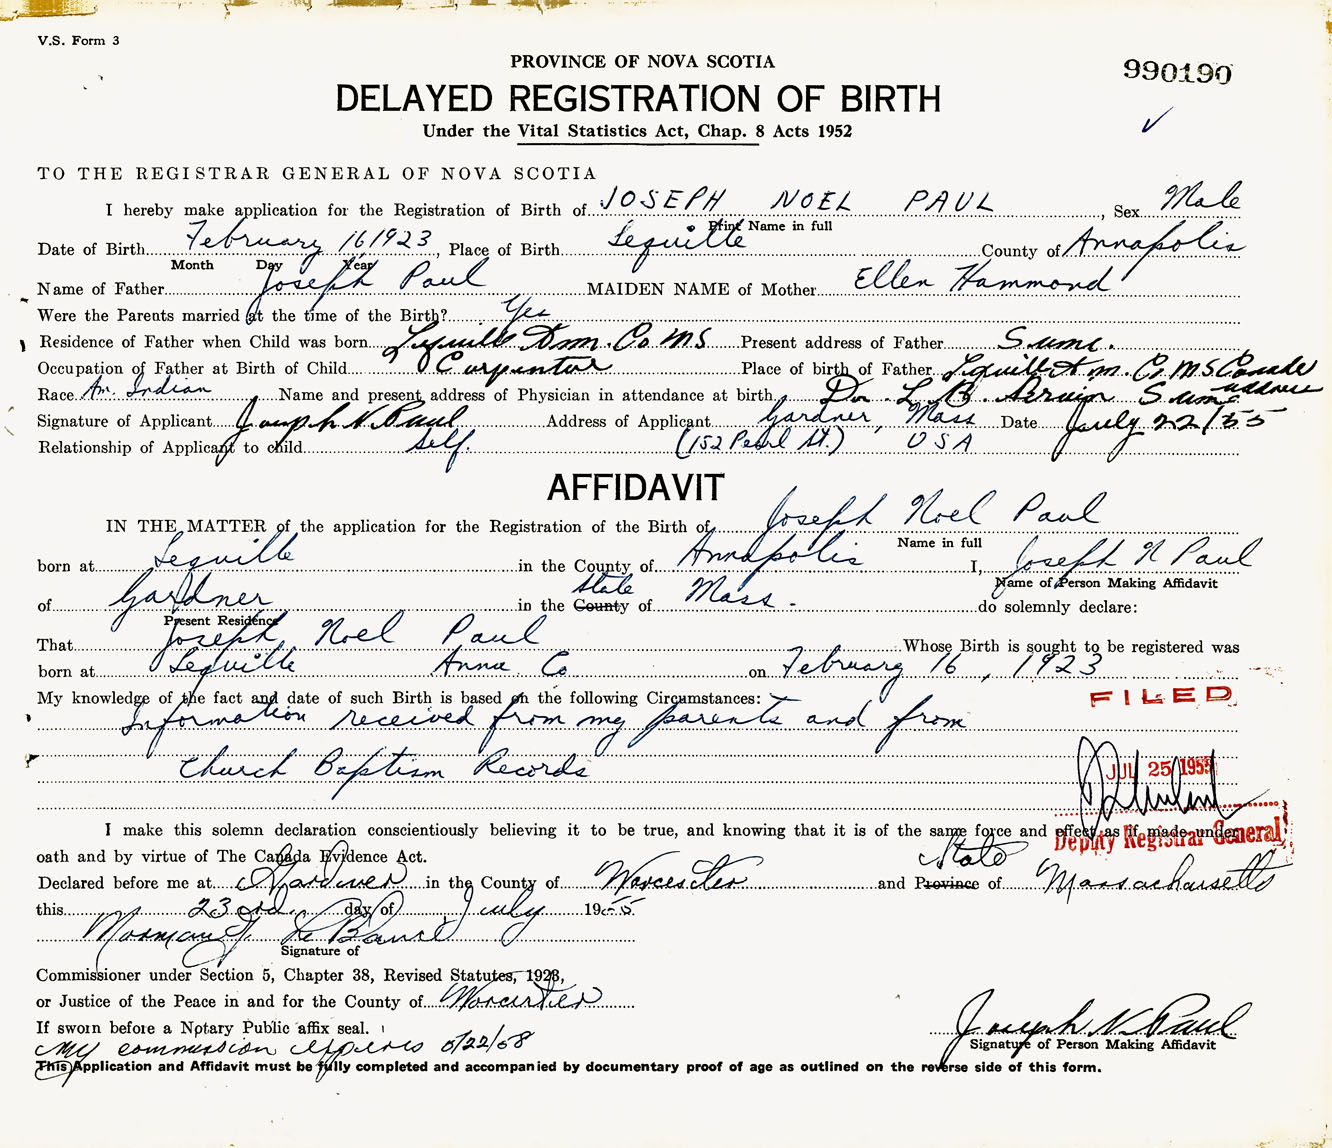 V.S. Form 3
PROVINCE OF NOVA SCOTIA
990190
DELAYED REGISTRATION OF BIRTH
Under the Vital Statistics Act, Chap. 8 Acts 1952
TO THE REGISTRAR GENERAL OF NOVA SCOTIA
I hereby make application for the Registration of Birth of JOSEPH NOEL PAUL, Sex Male
Print Name in full
Date of Birth February 16 1923, Place of Birth Lequille County of Annapolis
Month Day Year
Name of Father Joseph Paul MAIDEN NAME of Mother Ellen Hammond
Were the Parents married at the time of the Birth? Yes
Residence of Father when Child was born Lequille Ann. Co. N S Present address of Father Same.
Occupation of Father at Birth of Child Carpenter Place of birth of Father Lequille Ann. Co. N S Canada
Race Am. Indian Name and present address of Physician in attendance at birth Dr. L. B. Same address
Signature of Applicant Joseph N. Paul Address of Applicant Gardner, Mass Date July 22/55
Relationship of Applicant to child self. (152 Pearl St.) U S A
AFFIDAVIT
IN THE MATTER of the application for the Registration of the Birth of Joseph Noel Paul
Name in full
born at Lequille in the County of Annapolis I, Joseph N Paul
Name of Person Making Affidavit
of Gardner in the County State of Mass. do solemnly declare:
Present Residence
That Joseph Noel Paul Whose Birth is sought to be registered was
born at Lequille Anna Co on February 16, 1923
My knowledge of the fact and date of such Birth is based on the following Circumstances:
FILED
Information received from my parents and from
Church Baptism Records
JUL 25 1955
I make this solemn declaration conscientiously believing it to be true, and knowing that it is of the same force and effect as if made under
Deputy Registrar General
oath and by virtue of The Canada Evidence Act.
Declared before me at Gardner in the County of Worcester and Province State of Massachusetts
this 23rd. day of July 1955.
Norman J. Le Blanc
Signature of
Commissioner under Section 5, Chapter 38, Revised Statutes, 1923,
or Justice of the Peace in and for the County of Worcester
If sworn before a Notary Public affix seal.
Joseph N. Paul
Signature of Person Making Affidavit
My commission expires 5/22/58
This Application and Affidavit must be fully completed and accompanied by documentary proof of age as outlined on the reverse side of this form.